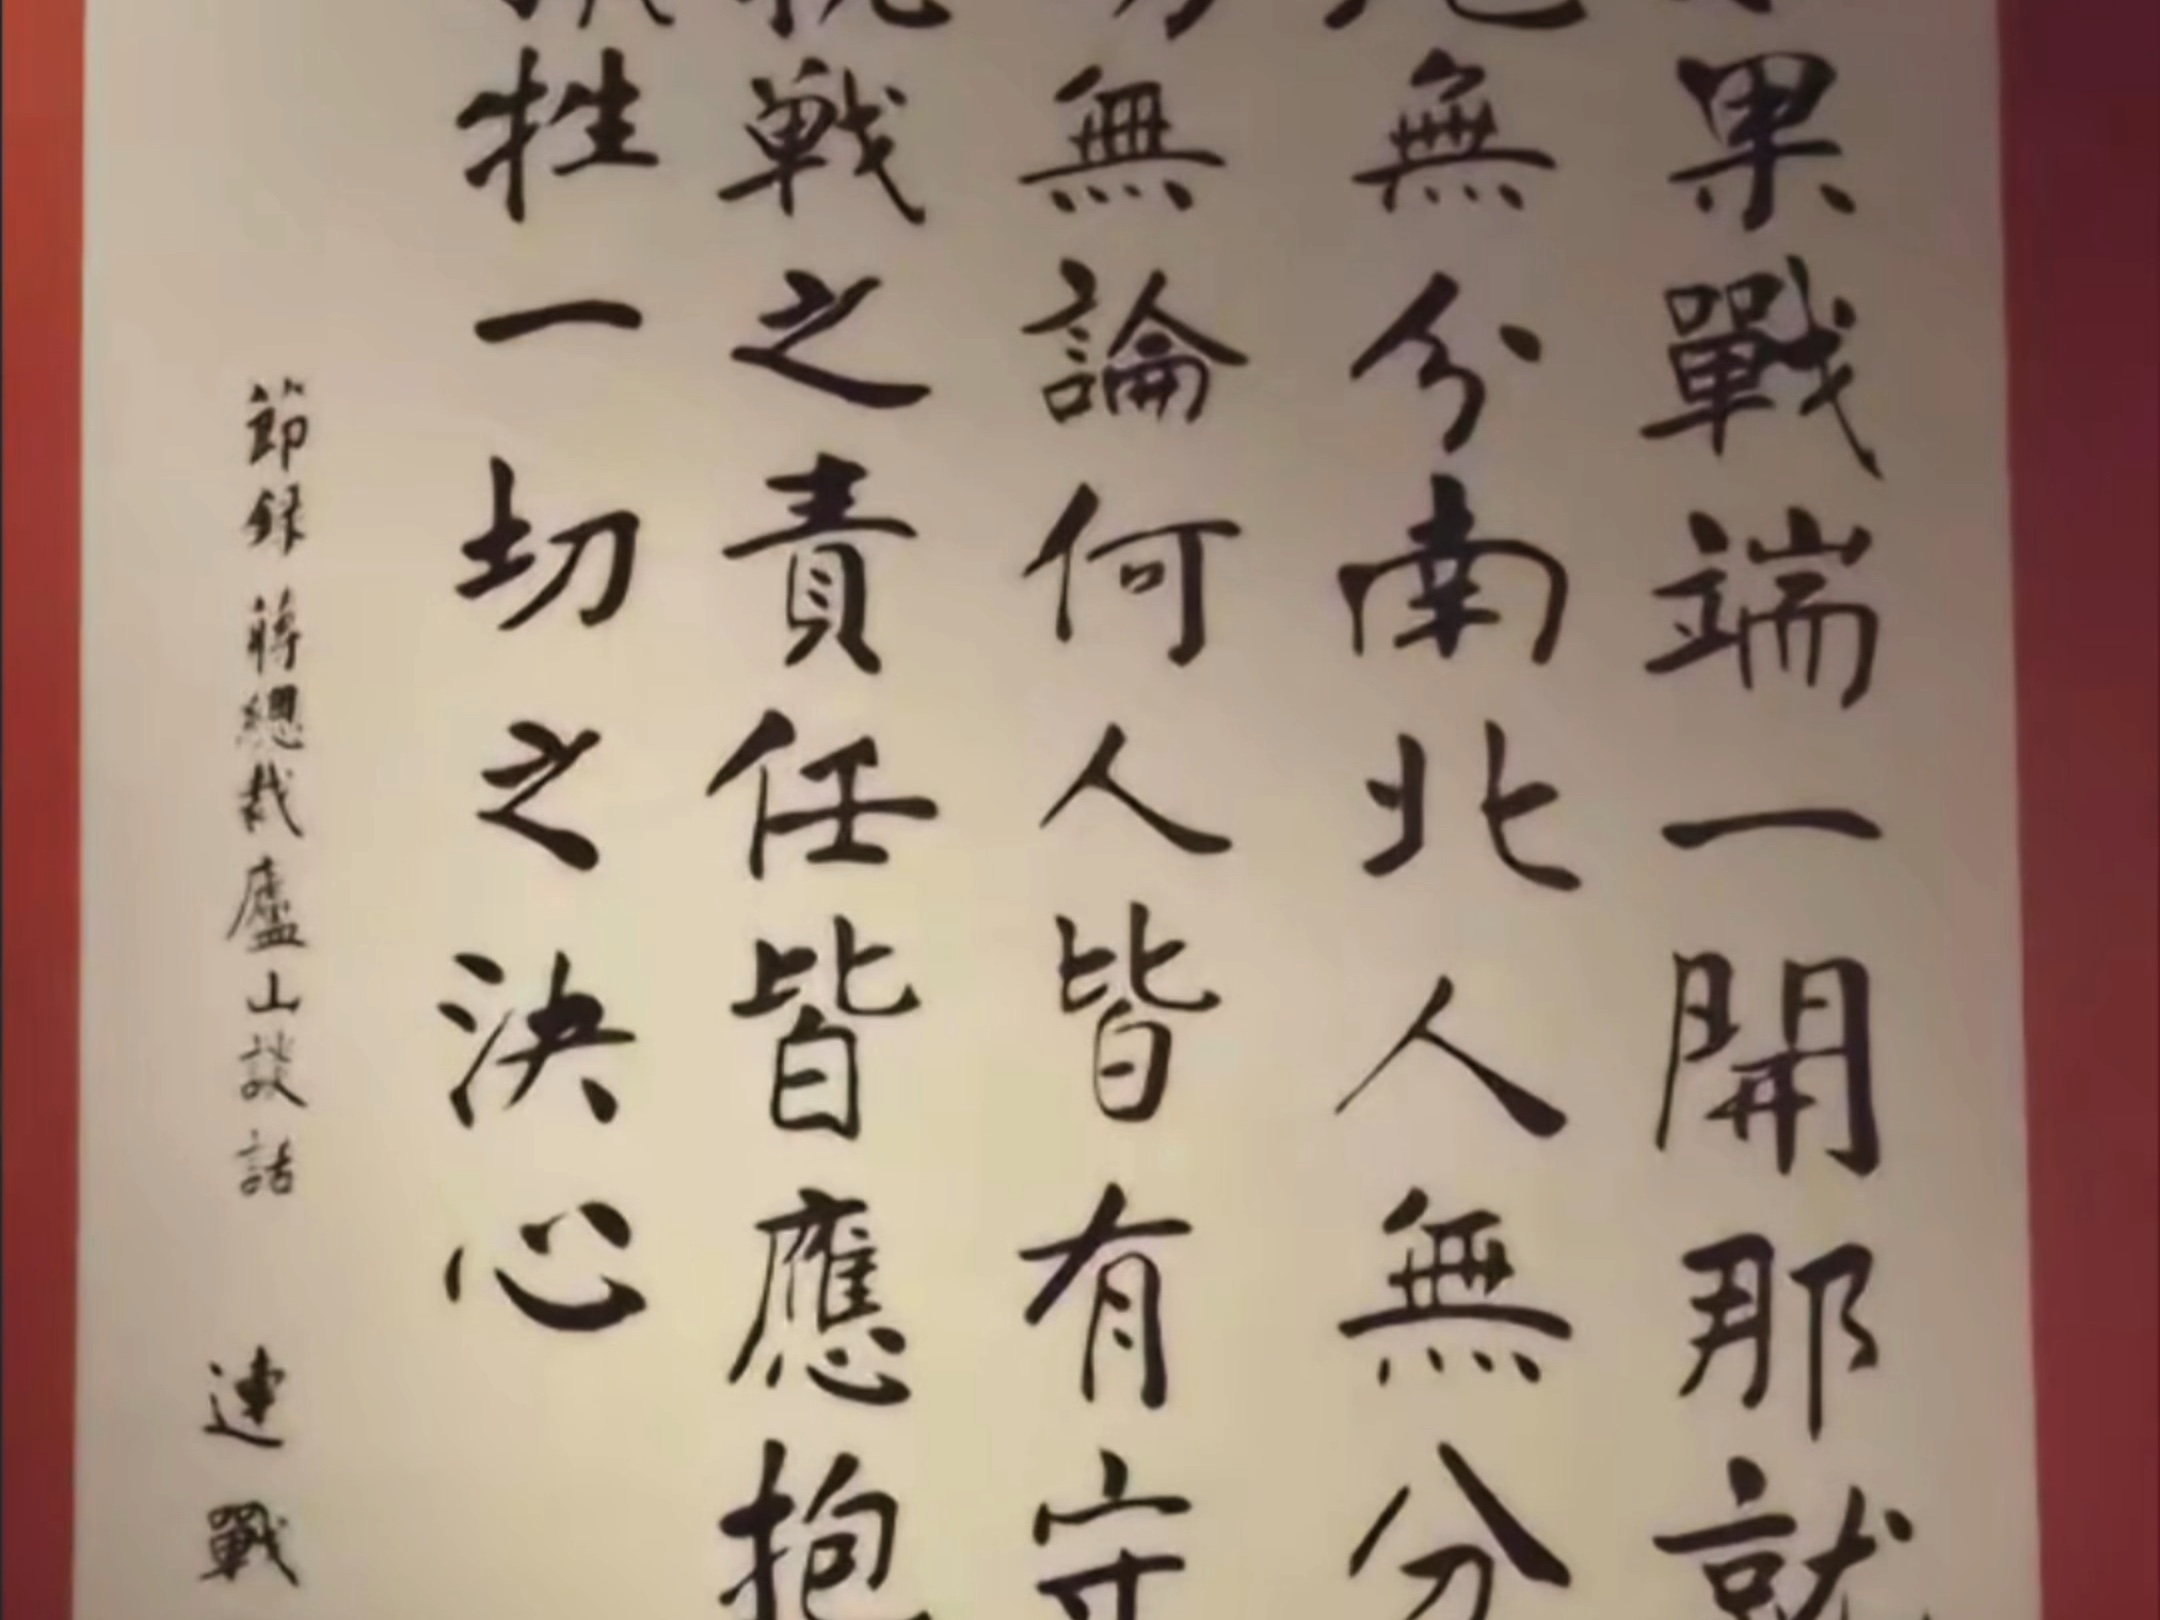 果戰端一開那就
無分南北人無分
無論何人皆有守
戰之責任皆應抱
牲一切之決心
節録 蔣總裁廬山談話
連戰